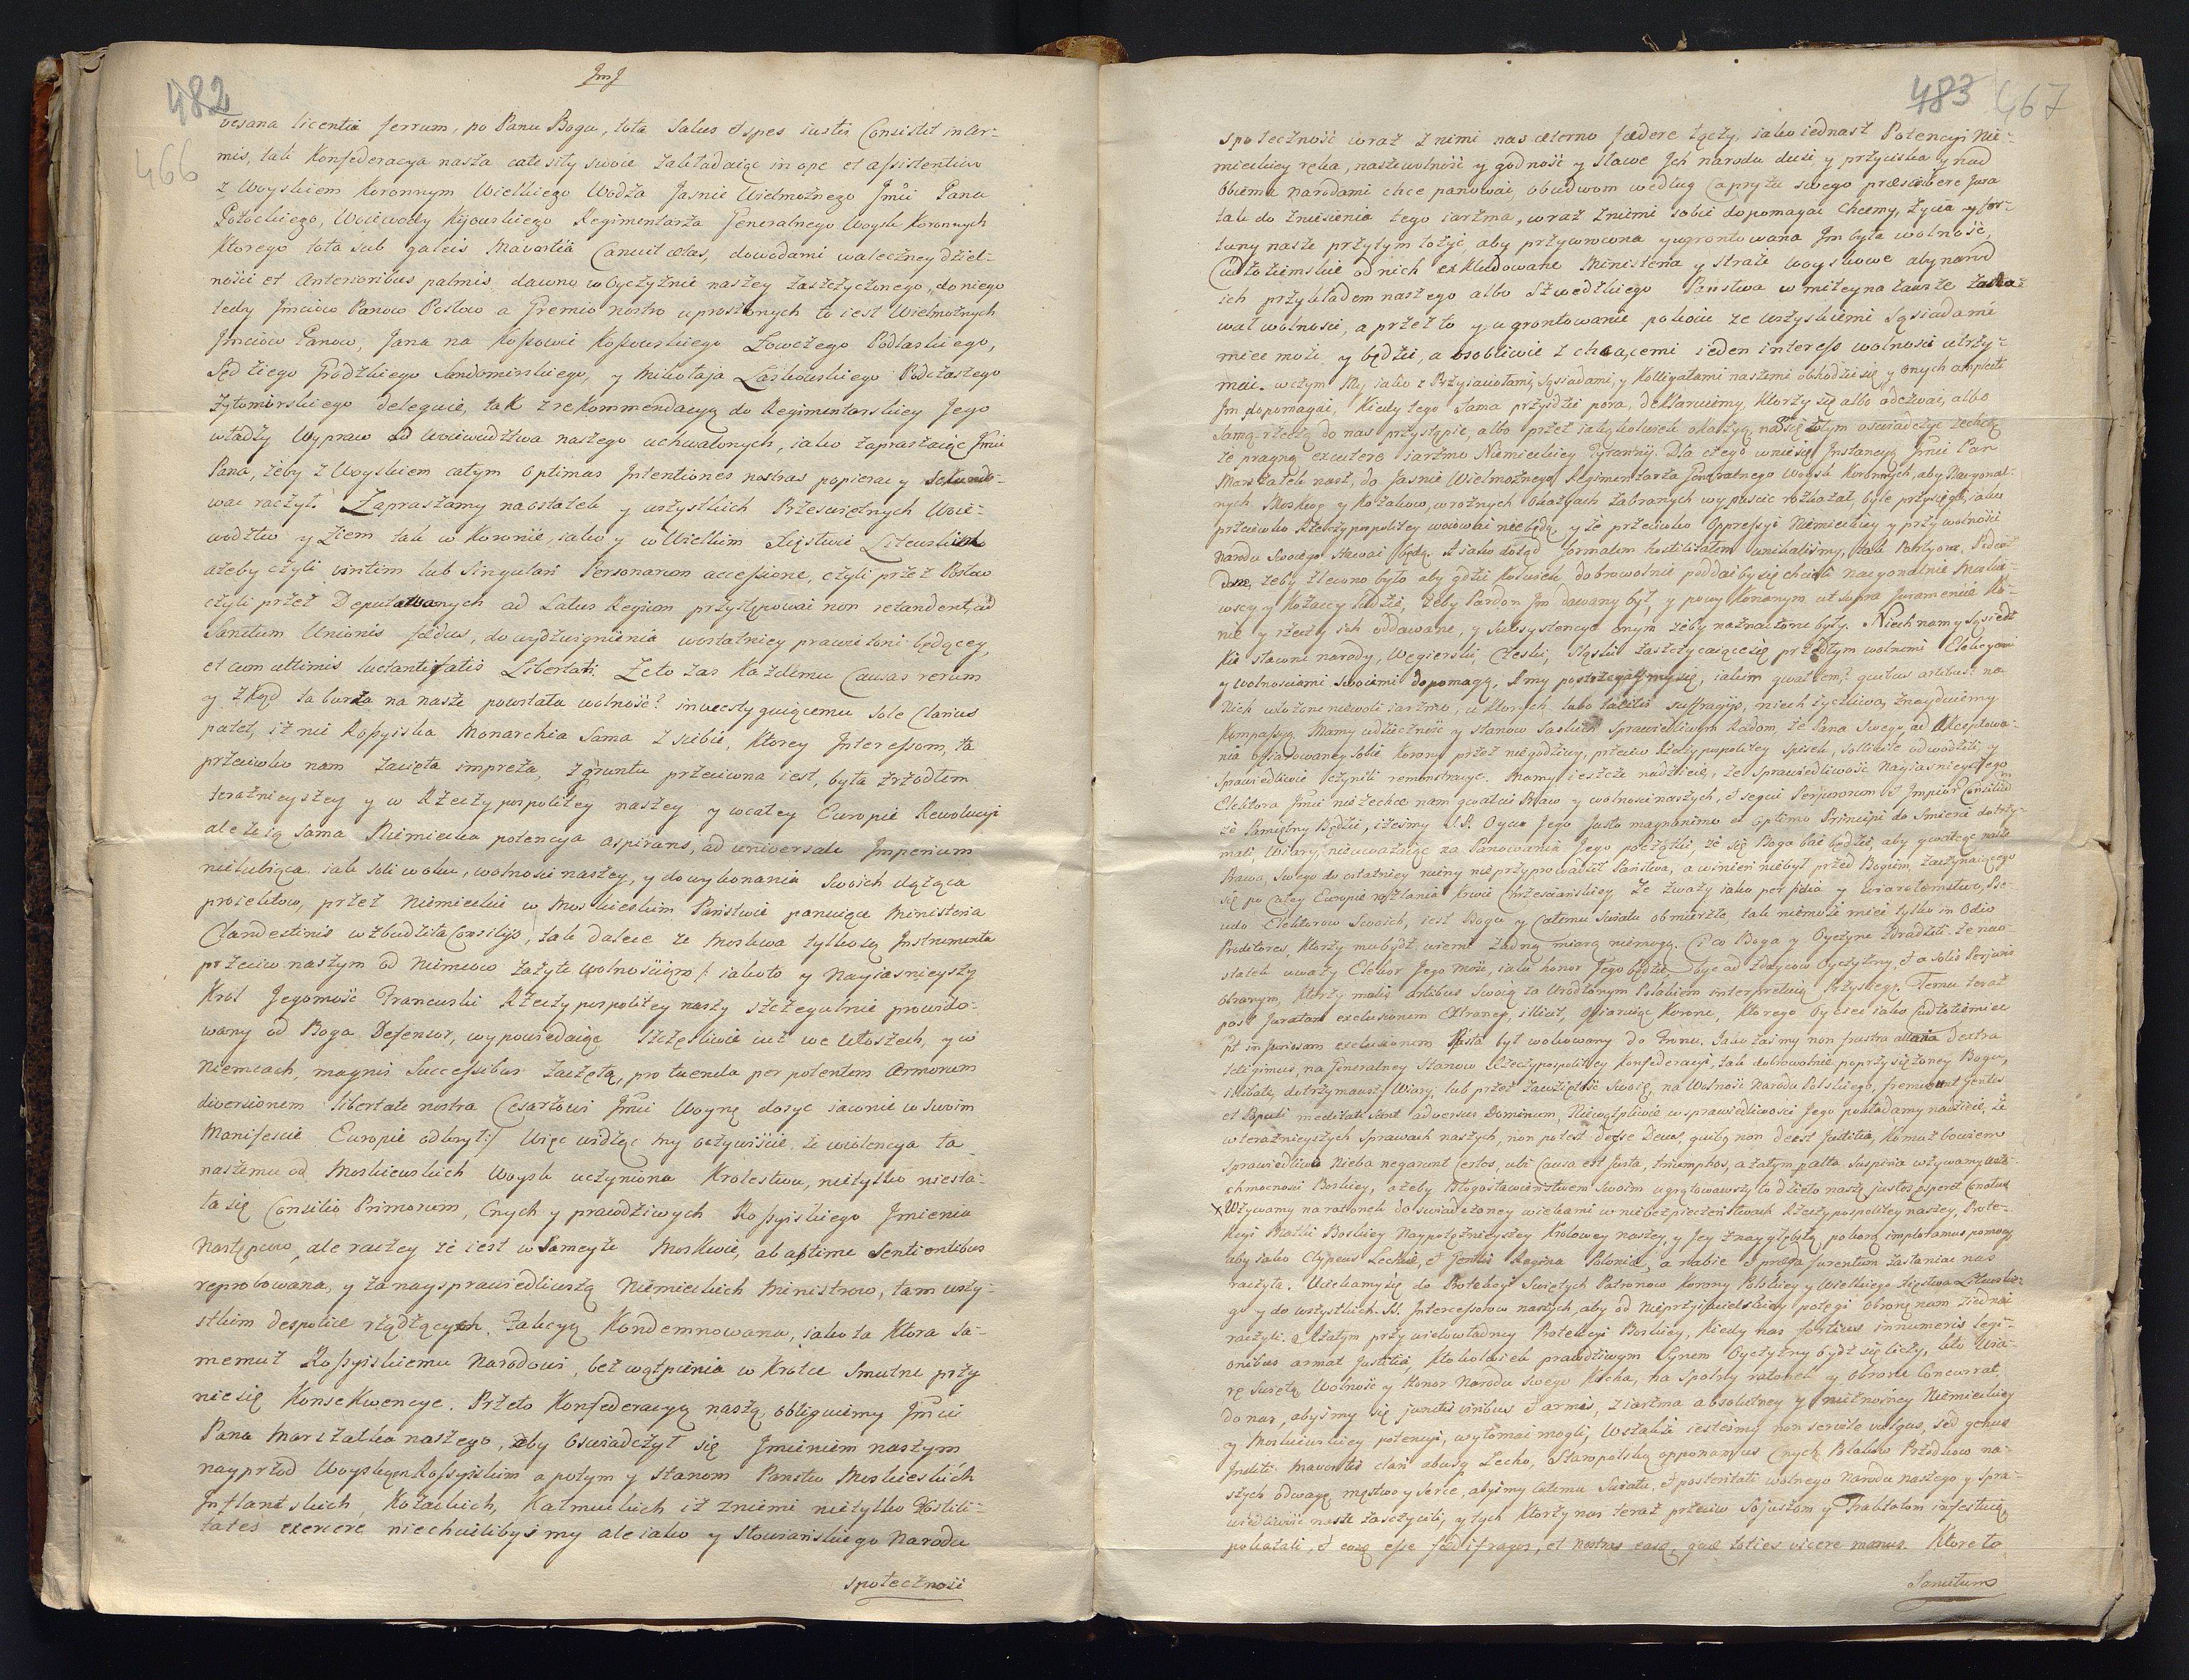 JmJ
482
466
vesana licentia ferrum, po Panu Bogu, tota Salus et spes iustis Consistit in ar-
mis, tak Konfederacya nasza całe siły swoie zakładaiąc in ope et assistentia
z Woyskiem Koronnym Wielkiego Wodza Jasnie Wielmożnego Jmci Pana
Potockiego, Woiewody Kijowskiego Regimentarza Generalnego Woysk Koronnych
Ktorego tota sub galeis Mavortia Canuit ætas, dowodami waleczney dziel-
ności et anterioribus palmis, dawno w Oyczyznie naszey zaszczyczonego, do niego
tedy Jmciow Panow Posłow a Gremio nostro uproszonych to iest Wielmożnych
Jmciow Panow, Jana na Kossowie Kossowskiego Łowczego Podlaskiego,
Sędziego Grodzkiego Sandomirskiego, y Mikołaja Laskowskiego Podczaszego
Żytomirskiego deleguie, tak z rekommendacyą do Regimentarskiey Jego
władzy Wypraw od Woiewodztwa naszego uchwalonych, iako zapraszaiąc Jmci
Pana, żeby z Woyskiem całym optimas Intentiones nostras popierać y sekundo-
wać raczył. Zapraszamy na ostatek y wszystkich Prześwietnych Woie-
wodztw y Ziem tak w Koronie, iako y w Wielkim Xięstwie Litewskim
ażeby czyli viritim lub Singulari Personarum accessione, czyli przez Posłow
czyli przez Deputowanych ad Latus Regium przystępować non retardent, ad
Sanctum Unionis fœdus, do wydźwignienia w ostatniey prawie toni będącey,
et cum ultimis luctanti fatis Libertati. Że to zas Każdemu Causas rerum
y zkąd ta burza na nasze powstała wolność? inwestyguiącemu sole Clarius
patet, iż nie Rossyiska Monarchia Sama z siebie, Ktorey Interessom, ta
przeciwko nam zawzięta impreza, z gruntu przeciwna iest, była źrzodłem
teraznieyszey y w Rzeczypospolitey naszey y w całey Europie Rewolucyi
ale że ią sama Niemiecka potencya aspirans, ad universale Imperium
nielubiąca iak soli w oku, wolności naszey, y do wykonania Swoich dążąca
proiektow, przez Niemieckie w Moskieskim Państwie panuiące Ministeria
Clandestinis wzbudziła Consilijs, tak dalece że Moskwa tylko są Instrumenta
przeciw naszym od Niemcow zażyte wolnościom /: iako to y Nayiasnieyszy
Krol Jegomość Francuski Rzeczypospolitey naszy szczegulnie prowido-
wany od Boga Defensor, wypowiedaiąc szczęśliwie już we Włoszech, y w
Niemcach, magnis Successibus zaczętą, pro tuenda per potentem Armorum
diversionem libertate nostra Cesarzowi Jmci Woynę dosyć iawnie w Swoim
Manifescie Europie odkrył :/ Więc widząc my oczywiście że wiolencya ta
naszemu od Moskiewskich Woysk uczyniona Krolestwu, nietylko niesta-
ła się Consilio Primorum, Cnych y prawdziwych Rossyiskiego Jmienia
Następcow, ale raczey że iest w Sameyże Moskwie, ab optime Sentientibus
reprobowana, y za nayniesprawiedliwszą Niemieckich Ministrow, tam wszy-
stkim despotice rządzących, Zakcyą Kondemnowana, iako ta Ktora sa-
memuż Rossyiskiemu Narodowi, bez wątpienia w Krotce Smutne przy
niesię Konsekwencye. Przeto Konfederacyą naszą, obliguiemy Jmci
Pana Marszałka naszego, aby Oswiadczył się Jmieniem naszym
nayprzod Woyskom Rossyiskim a potym y Stanom Państw Moskieskich
Inflantskich, Kozackich, Kałmuckich iż z niemi nietylko Hostili-
tates exercere niechcielibyśmy ale iako y Słowiańskiego Narodu
społeczność
483 467
społeczność wraz z nimi nas æterno fœdere łączy, iako iednasz Potencyi Nie-
mieckiey ręka, nasze wolność y godność y sławę Jch narodu dusi y przyciska y nad
obiema narodami chce panować, obudwom według Capryżu swego præscribere Jura
tak do zniesienia tego iarzma, wraz z niemi sobie dopomagać Chcemy, życia y for-
tuny nasze przytym łożyć, aby przywrocona y ugrontowana Jm była wolność,
Cudzoziemskie od nich exkludowane Ministeria y Straże woyskowe aby narod
ich przykładem naszego albo Szwedzkiego Państwa w miłey na zawsze
wał wolności, a przez to y ugrontowanie pokoiu ze wszyskiemi Sąsiadami
mieć może y będzie, a osobliwie z chcącemi ieden interess wolności utrzy-
mać. w czym My iako z Przyiaciołami, Sąsiadami, y Kolligatami naszemi obchodzić się y onych
Jm dopomagać, Kiedy tego Sama przyidzie pora, deklaruiemy, Ktorzy się albo odezwać, albo
samą rzeczą do nas przystąpić, albo przez iakążkolwiek okazyą, nasię w tym oswiadczyć zechcą
że pragną excutere iarzmo Niemieckiey Tyranniy. Dla czego wniesie Instancyą Jmci Pan
Marszałek nasz, do Jasnie Wielmożnego Regimentarza Generalnego Woysk Koronnych, aby Nacyonal-
nych Moskwę y Kozakow, w rożnych okazyach zabranych wypuscić rozkazał, byle przysięgli, iako
przeciwko Rzeczypospolitey woiować niebędą, y że przeciwko Oppressyi Niemieckiey y przy wolności
Narodu Swoiego stawać będą. A iako dotąd formalem hostilitatem unikaliśmy, tak
żeby zlecono było aby gdzie Kolwiek dobrowolnie poddaiby się chcieli nacyonalnie Mosk-
wscy y Kozaccy ludzie, żeby Pardon Jm dawany był, y po wykonanym ut supra Juramencie Ko-
nie y rzeczy ich oddawane, y Subsystencye onym żeby naznaczone były. Niech nam y Sąsiedz
kie sławne narody, Węgierski, Czeski, Sląski zaszczycaiące się przedtym wolnemi Elekcyami
y wolnościami Swoiemi dopomagą, A my postrzegaiemy się, iakim gwałtem? quibus artibus? na
Nich włożone niewoli iarzmo, u ktorych, lubo tacitis suffragijs, niech życzliwą znayduiemy
Kompassyą. Mamy wdzięczność y Stanow Saskich Sprawiedliwym Radom, że Pana Swego, ad Akceptowa-
nia ofiarowaney Sobie Korony przez niegodziwy, przeciw Rzeczypospolitey Spisek, sollicite odwodzili, y
Sprawiedliwie czynili remonstracye. Mamy ieszcze nadzieię, że Sprawiedliwość Nayiasnieyszego
Elektora Jmci niezechce nam gwałcić Praw y wolności naszych, et sequi Perjurorum et Impior Consilia
że Pamiętny Będzie, iżeśmy S.P. Oycu Jego Justo magnanimo et optimo Principi do Smierci dotrzy-
mali Wiary, nieuważaiąc na Panowania Jego początki, że się Boga bać będzie, aby gwałcąc nasze
Prawa, Swego do ostatniey ruiny nieprzyprowadził Państwa, a winien niebył przed Bogiem, zaczynaiącego
się po Całey Europie rozlania Krwie Chrześciańskiey, że zważy iako perfidia y wiarołomstwo, Pse-
udo Elektorow Swoich, iest Bogu y Całemu Swiatu obmierzłe, tak niemoże mieć tylko in Odio
Proditores, Ktorzy mu bydź wierni żadną miarą niemogą. Ci co Boga y Oyczyznę zdradzili. Że nao-
statek uważy Elektor Jego Mość, iaki honor Jego będzie, bydź od zdraycow Oyczyzny, et a solis Perjuris
obranym, Ktorzy malis artibus Swoią za Urodzonym Polakiem interpretuią Przysięgę. Temu teraz
post Juratam exclusionem Extranei, illicit, ofiaruiąc Koronę, Ktorego Oyciec iako Cudzoziemiec
exclusionem Piasta był wokowany do Tronu. Jakożaśmy non frustra dextra
tetigimus, na Generalney Stanow Rzeczypospolitey Konfederacyi, tak dobrowolnie poprzysiężoney Bogu,
illibatę dotrzymawszy Wiary, lub przez zawziętość Swoię, na Wolność Narodu Polskiego, fremuerunt Gentes
et Populi meditati sunt adversus Dominum, Niewątpliwie w sprawiedliwości Jego pokładamy nadzieię, że
w teraznieyszych Sprawach naszych, non potest deesse Deus, quibq non deest Justitia, Komuż bowiem
Sprawiedliwe Nieba negarunt certos, ubi Causa est Justa, triumphos, a zatym suspiria wzywamy wsze-
chmocności Boskiey, ażeby Błogosławieństwem Swoim ugrontowawszy to dzieło nasze Justos prosperet Conatus
x Wzywamy na ratonek doświadczoney wiekami w niebezpieczeństwach Rzeczypospolitey naszey, Prote-
kcyi Matki Boskiey Naypotężnieyszey Krolowey naszey, y Jey z naygłębszą pokorą imploramus pomocy
aby iako Clypeus Lechiæ, et Gentis Regina Poloniæ, a rabie et præda furentum zasłaniać nas
raczyła. Uciekamy się do Protekcyi Swiętych Patronow Korony Polskiey y Wielkiego Xięstwa Litewskie-
go y do wszystkich SS. Intercessorow naszych, aby od Nieprzyiacielskiey potęgi obronę nam ziednać
raczyli. A zatym przy wielowładney Protekcyi Boskiey, Kiedy nas fortius innumeris legi-
onibus armat Justitia, Ktokolwiek prawdziwym Synem Oyczyzny bydź się liczy, kto Wia-
rę Swiętą Wolność y Honor Narodu Swego Kocha, na Spolny ratonek y obronę Concurrat
do nas, abyśmy się junctis viribus et armis, z iarzma absolutney y Niemieckiey
y Moskiewskiey potencyi, wyłomać mogli, Wszakże iesteśmy non servile vulgus, sed genus
Incliti Mavortis clari Lecho, Staropolską opponamus Cnych Polakow Przodkow na-
szych odwagę męstwo y Serce, abyśmy Całemu Swiatu, et posteritati wolnego Narodu naszego y Spra-
wiedliwość nasze zaszczycili, y tych Ktorzy nas teraz przeciw Sojuszom y Traktatom infestuią
pokazali, et eosq esse fœdifragos, et nostras easq, quæ toties vicere manus. Ktore to
Sanctum